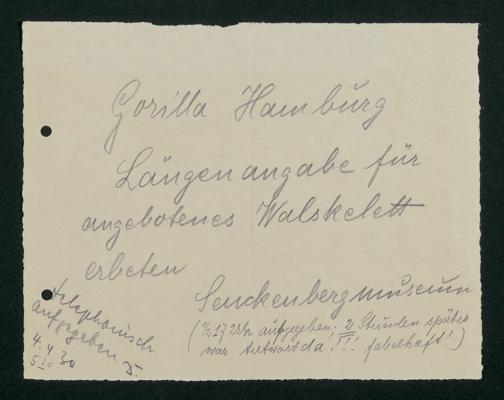 Gorilla Hamburg
Längenangabe für
angebotenes Walskelett
erbeten
Senckenbergmuseum
(½17 Uhr aufgegeben; 2 Stunden später
war Antwort da !!! fabelhaft!)
telephonisch
aufgegeben
4. 4 30
5 20